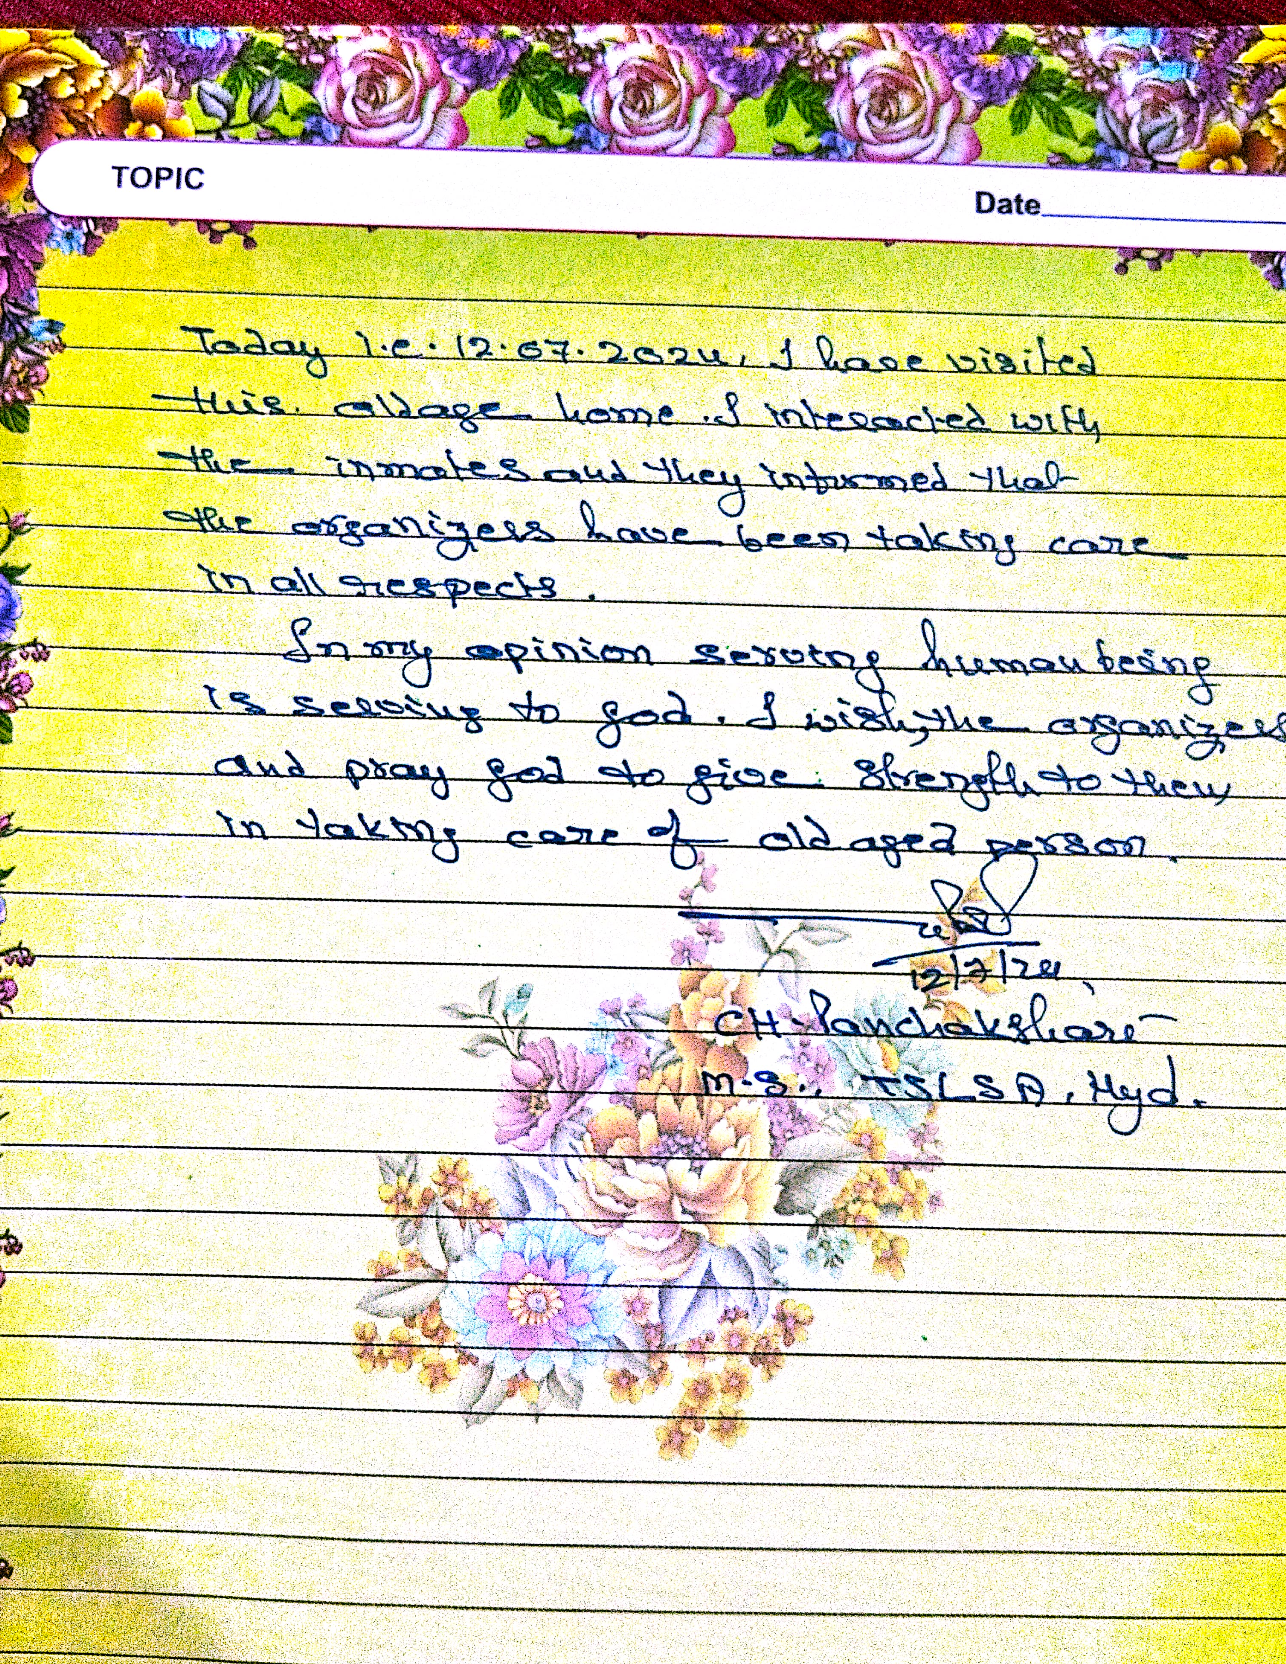 TOPIC
Date
Today i.e. 12.07.2024, I have visited
this oldage home. I interacted with
the inmates and they informed that
the organizers have been taking care
in all respects.
In my opinion serving human being
is serving to god. I wish, the organizers
and pray god to give strength to them
in taking care of old aged person.
12/7/24
CH. Panchakshari
M.S., TSLSA, Hyd.